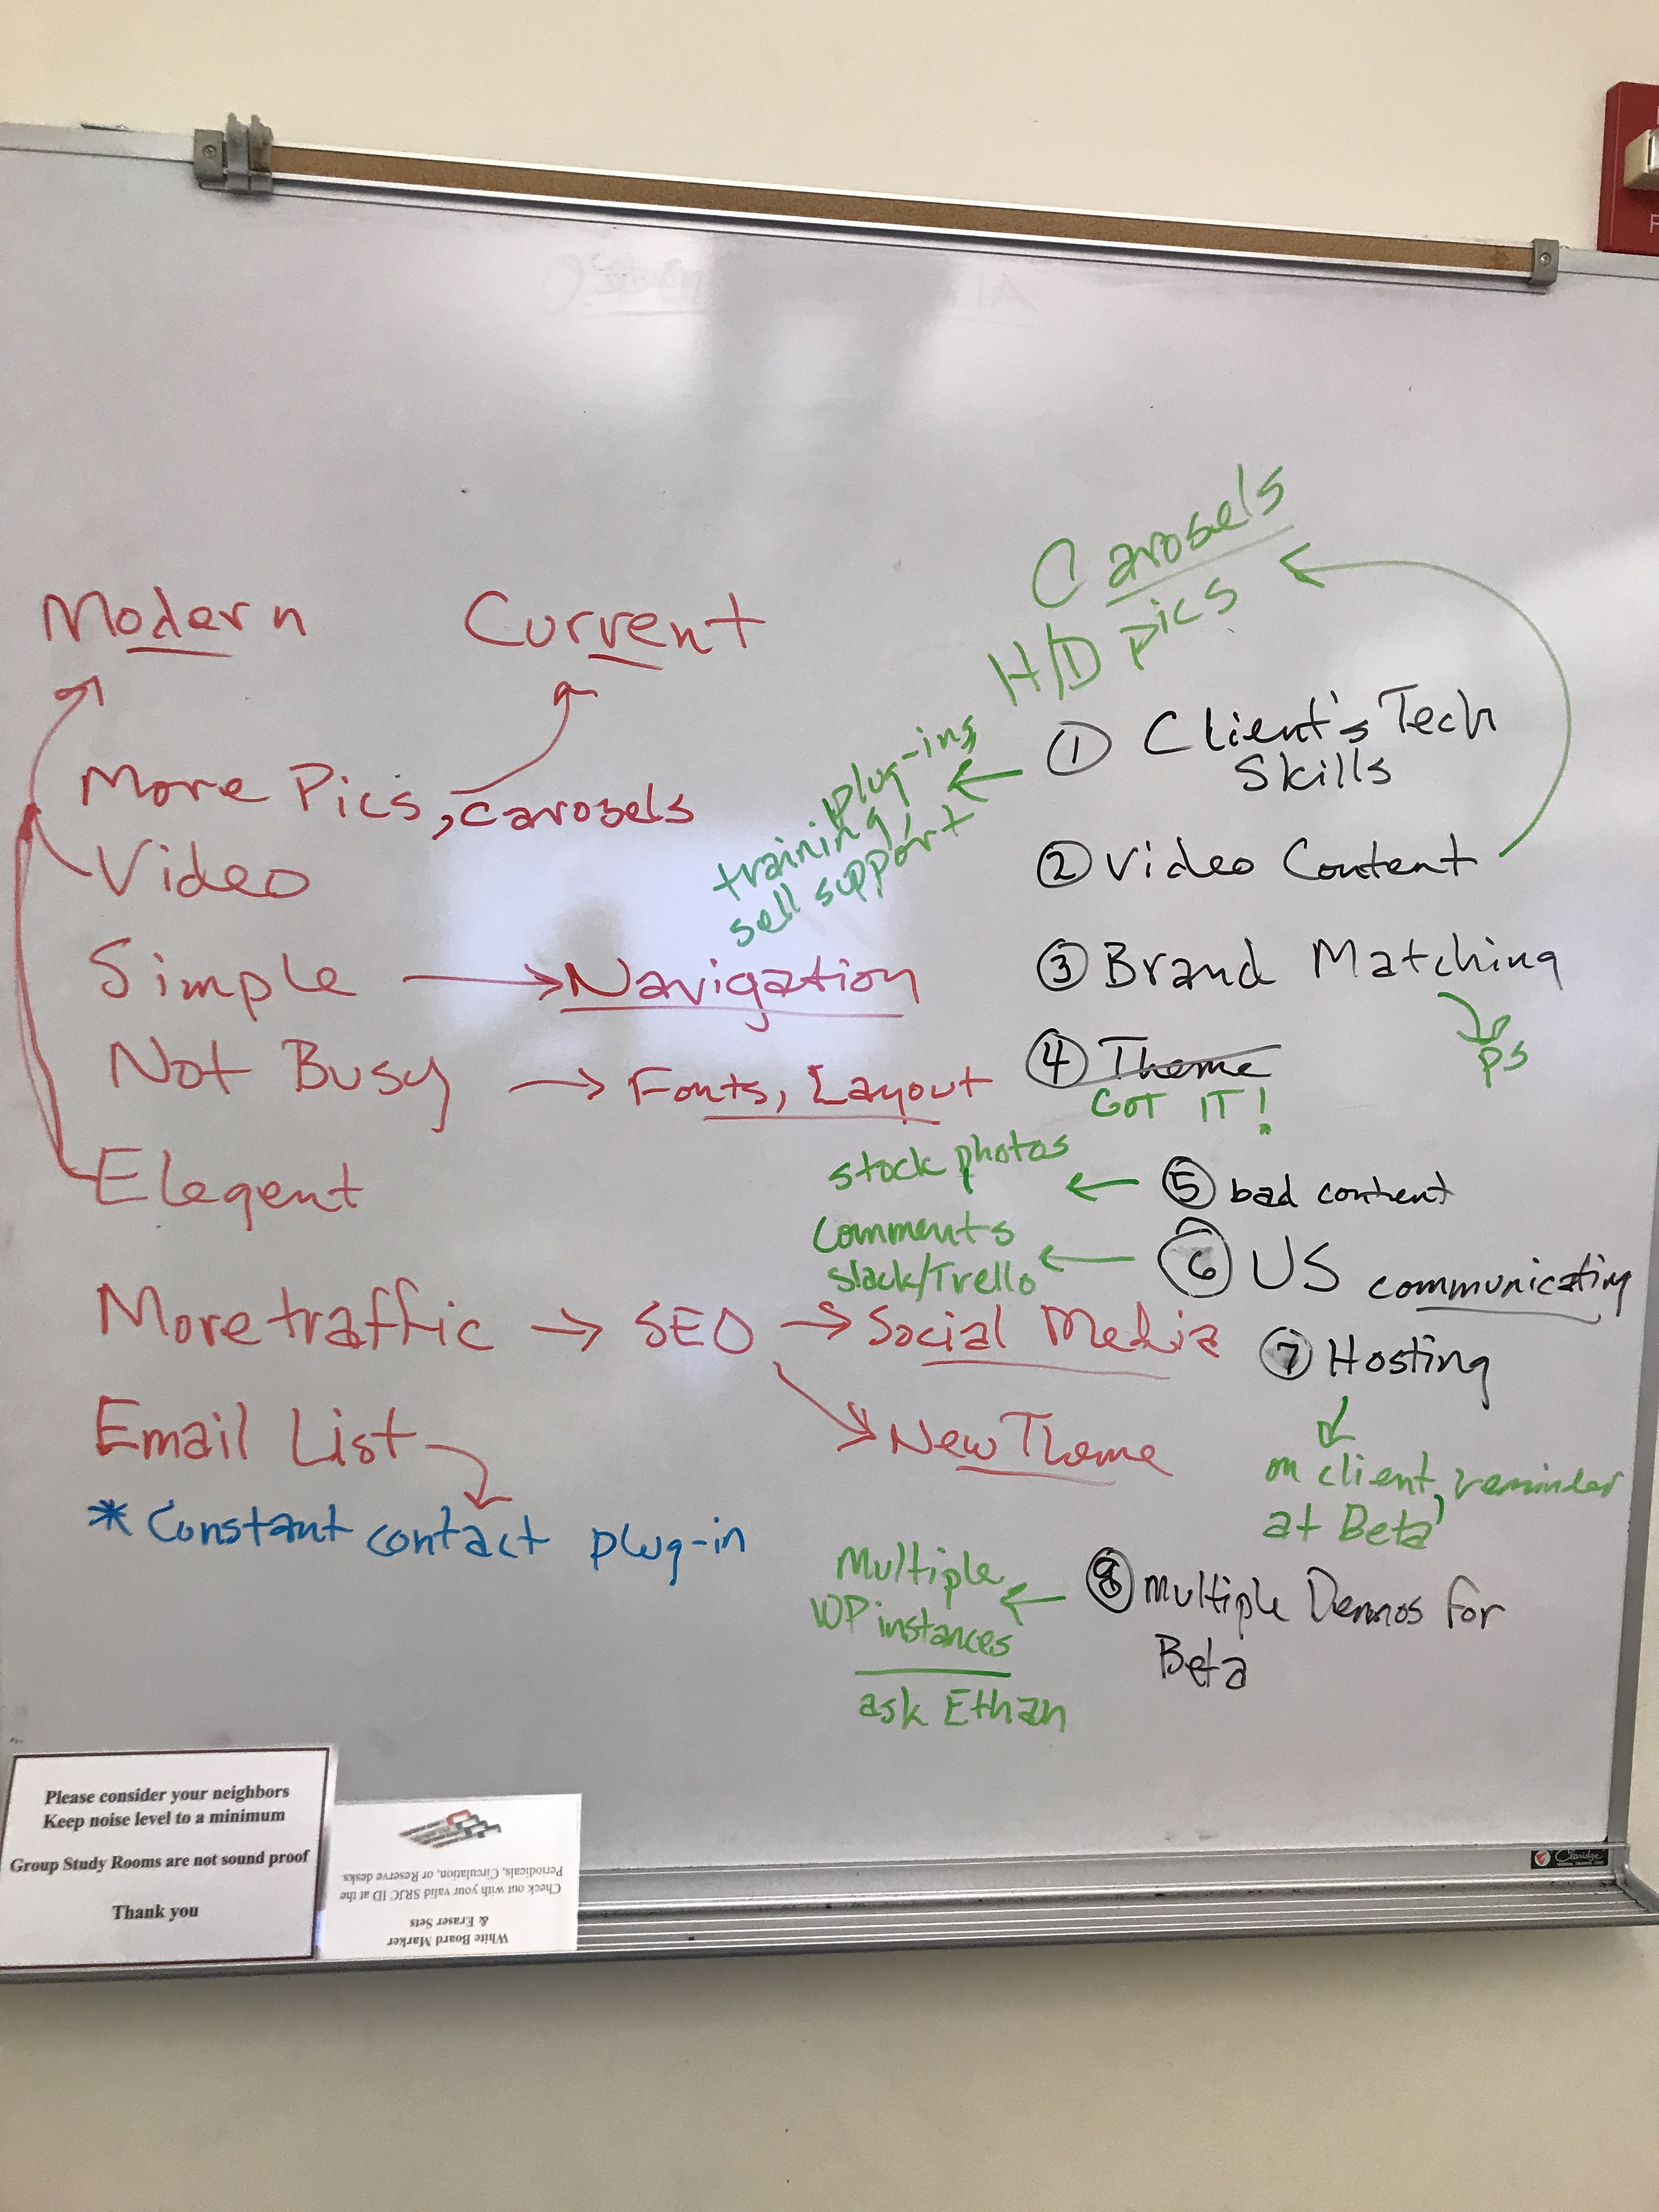 Modern Current
More Pics, carosels
Video
Simple → Navigation
Not Busy → Fonts, Layout
Elegent
More traffic → SEO → Social Media
→ New Theme
Email List
* Constant contact plug-in
Carosels
H/D pics
① Client's Tech
Skills
← plug-ins,
training,
sell support
② Video Content
③ Brand Matching
ps
④ Theme
GOT IT!
⑤ bad content
← stock photos
⑥ US communicating
← Comments
slack/Trello
⑦ Hosting
on client, reminder
at Beta
⑧ Multiple Demos for
Beta
← Multiple
WP instances
ask Ethan
Please consider your neighbors
Keep noise level to a minimum
Group Study Rooms are not sound proof
Thank you
White Board Marker
& Eraser Sets
Check out with your valid SRJC ID at the
Periodicals, Circulation, or Reserve desks.
Claridge